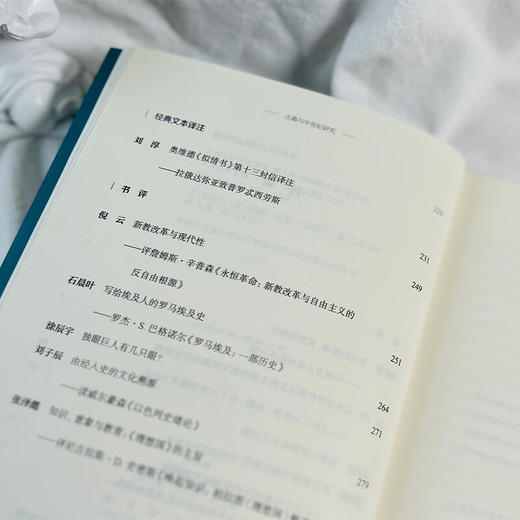 古典与中世纪研究
经典文本译注
刘 淳 奥维德《拟情书》第十三封信译注
——拉俄达弥亚致普罗忒西劳斯 229
书 评
倪 云 新教改革与现代性 231
——评詹姆斯·辛普森《永恒革命：新教改革与自由主义的 249
反自由根源》
石晨叶 写给埃及人的罗马埃及史
——罗杰·S. 巴格诺尔《罗马埃及：一部历史》 251
涂辰宇 独眼巨人有几只眼？
刘子辰 由经入史的文化溯源 264
——读威尔豪森《以色列史绪论》 271
张泽懿 知识、意象与教育：《理想国》的主旨
——评尼古拉斯·D. 史密斯《唤起知识：柏拉图〈理想国〉 279